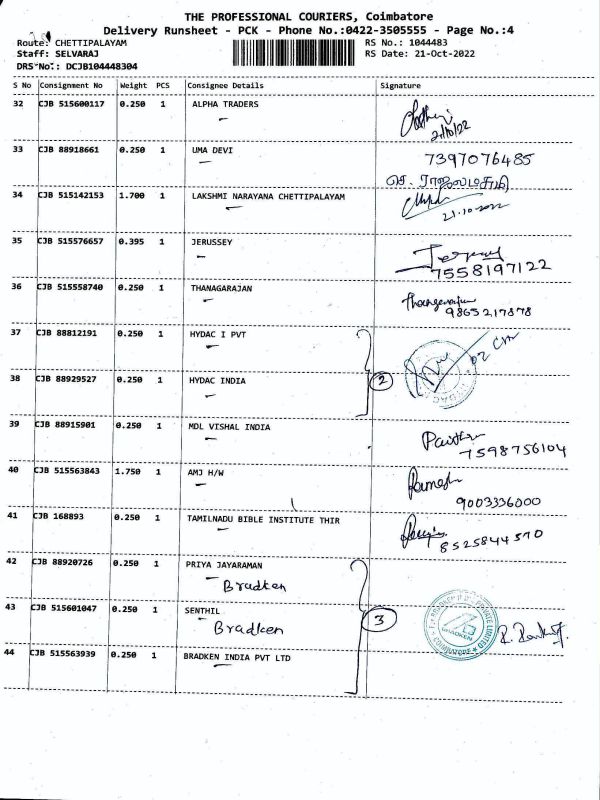 THE PROFESSIONAL COURIERS, Coimbatore
Delivery Runsheet - PCK - Phone No.:0422-3505555 - Page No.:4
Route: CHETTIPALAYAM RS No.: 1044483
Staff: SELVARAJ RS Date: 21-Oct-2022
DRS No.: DCJB104448304
S No Consignment No Weight PCS Consignee Details Signature
32 CJB 515600117 0.250 1 ALPHA TRADERS
21/10/22
33 CJB 88918661 0.250 1 UMA DEVI 7397076485
34 CJB 515142153 1.700 1 LAKSHMI NARAYANA CHETTIPALAYAM
21.10.2022
35 CJB 515576657 0.395 1 JERUSSEY
7558197122
36 CJB 515558740 0.250 1 THANAGARAJAN Thangarajan
9865217878
37 CJB 88812191 0.250 1 HYDAC I PVT
38 CJB 88929527 0.250 1 HYDAC INDIA 2
39 CJB 88915901 0.250 1 MDL VISHAL INDIA
7598756104
40 CJB 515563843 1.750 1 AMJ H/W Ramesh
9003336000
41 CJB 168893 0.250 1 TAMILNADU BIBLE INSTITUTE THIR
8525844570
42 CJB 88920726 0.250 1 PRIYA JAYARAMAN
Bradken
43 CJB 515601047 0.250 1 SENTHIL 3
Bradken
44 CJB 515563939 0.250 1 BRADKEN INDIA PVT LTD